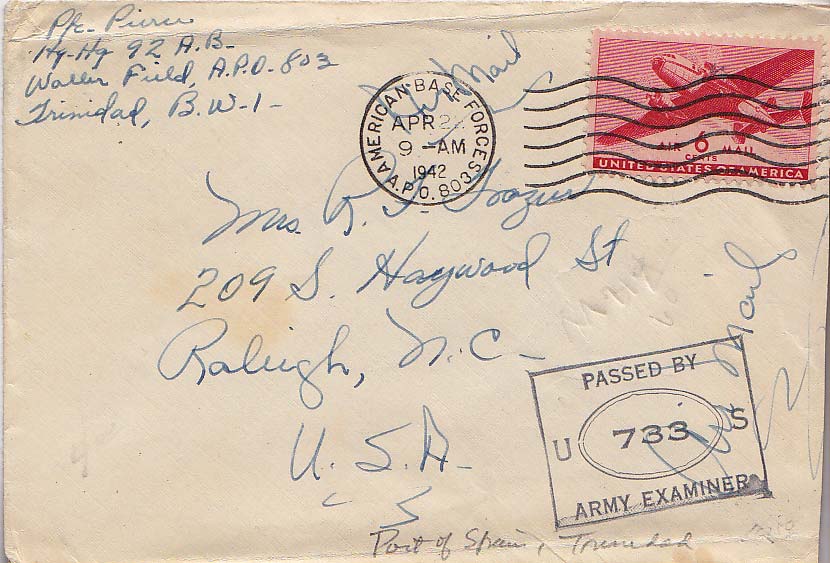 Pfc. Pierce
Hq-Hq 92 A.B.
Waller Field, A.P.O. 803
Trinidad, B.W.I.
Air Mail
AMERICAN BASE FORCES
APR 2
9 -AM
1942
A.P.O. 803
AIR 6 MAIL
CENTS
UNITED STATES OF AMERICA
Mrs. R. F.
209 S. Haywood St
Raleigh, N.C.
U.S.A.
Air Mail
PASSED BY
U 733 S
ARMY EXAMINER
Port of Spain, Trinidad